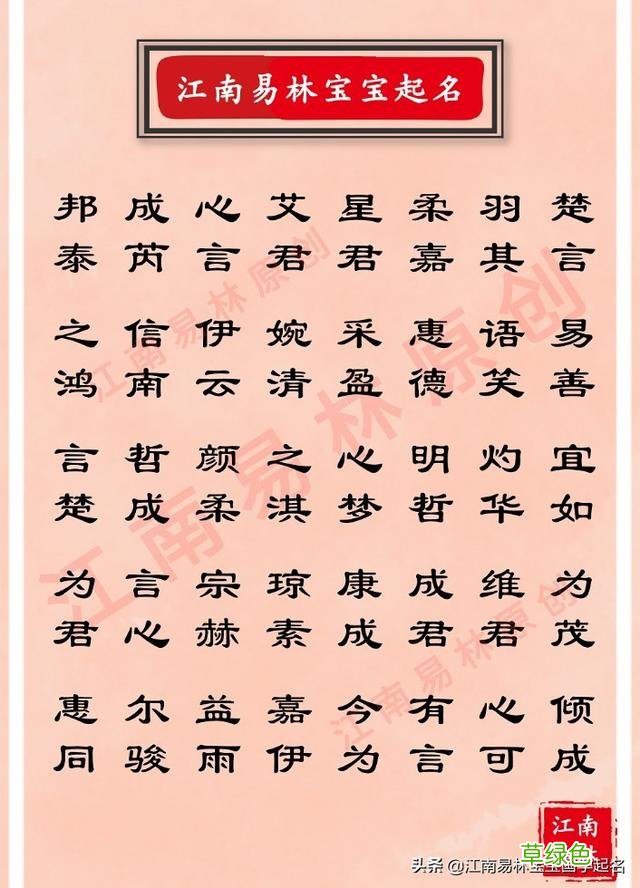 江南易林宝宝起名
邦 成 心 艾 星 柔 羽 楚
泰 芮 言 君 君 嘉 其 言
之 信 伊 婉 采 惠 语 易
鸿 南 云 清 盈 德 笑 善
言 哲 颜 之 心 明 灼 宜
楚 成 柔 淇 梦 哲 华 如
为 言 宗 琼 康 成 维 为
君 心 赫 素 成 君 君 茂
惠 尔 益 嘉 今 有 心 倾
同 骏 雨 伊 为 言 可 成
江南易林原创
江南易林原创
江南易林原创
江南
草绿色
头条 @江南易林宝宝国学起名